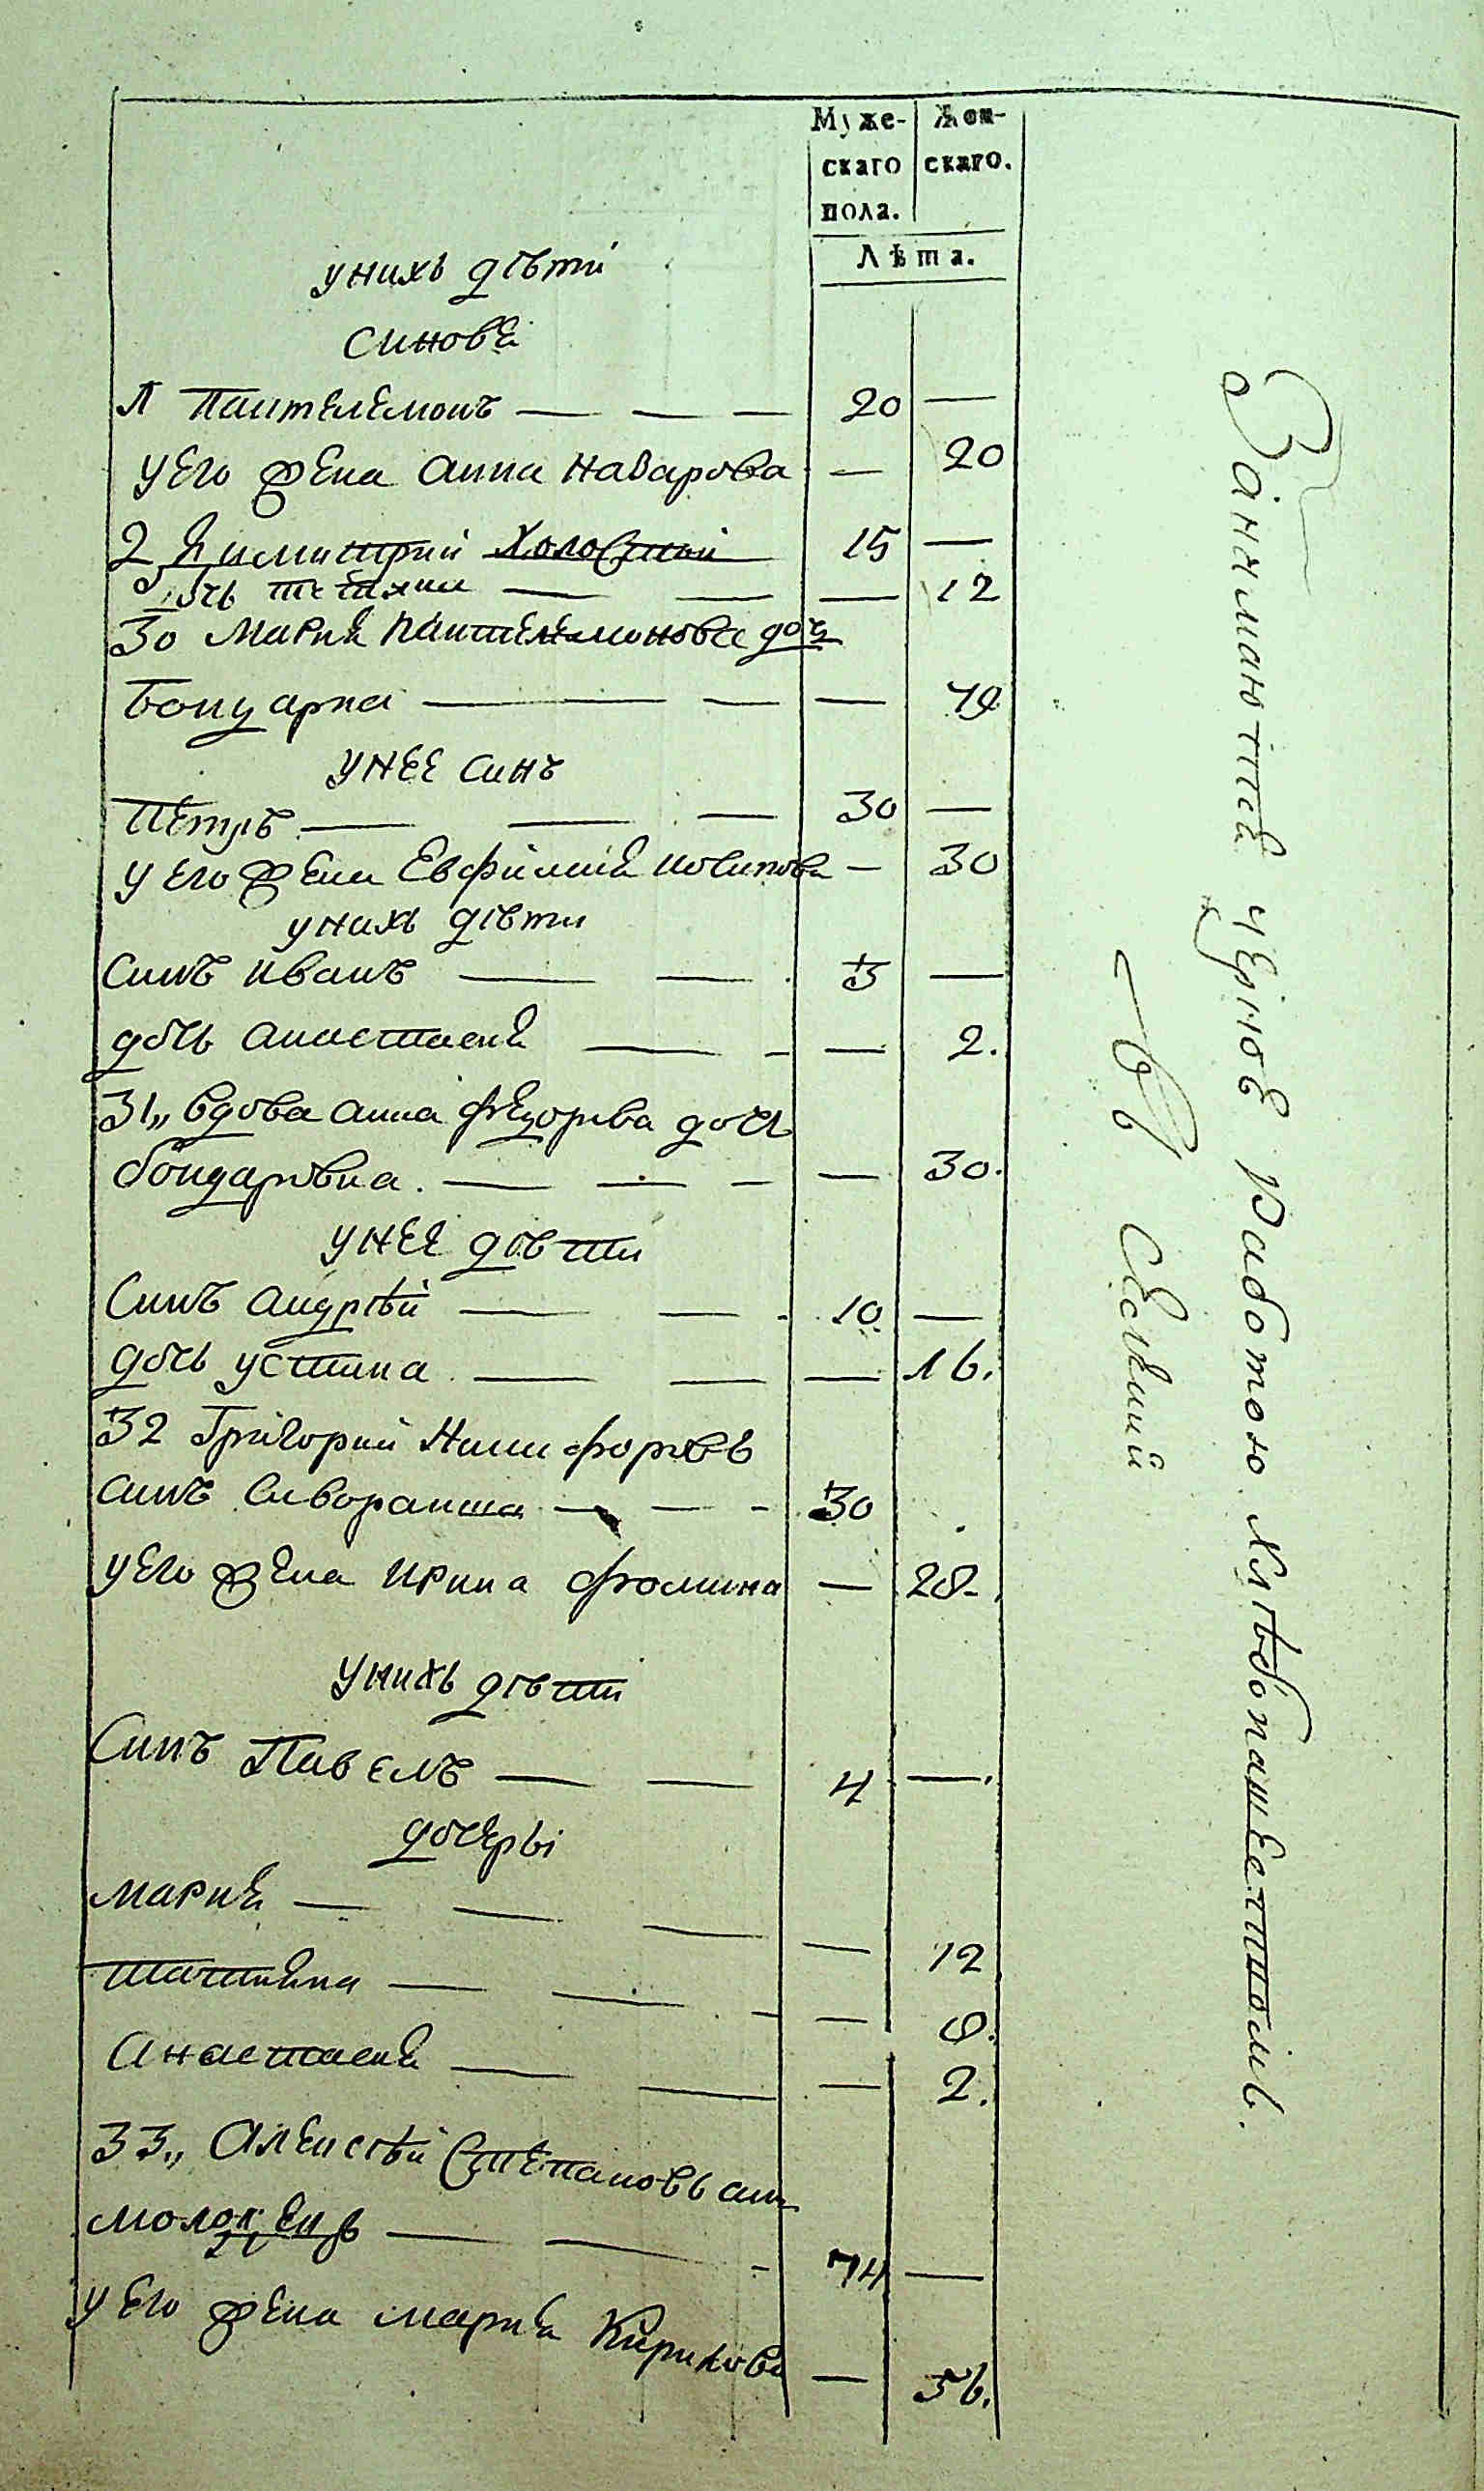 Муже-
скаго
пола.
Жен-
скаго.
Лѣта.
унихъ дѣти
синовя
1 Пантелемонъ — — — 20 —
уего жена анна назарова — 20
2 Димитрий Холостый 15 —
дочь — — — 12
30 Мария Пантелемонова доч
бондарка — — — 79
унее синъ
Петръ — — — 30 —
у его жена Евфимия — 30
унихъ дѣти
синъ иванъ — — 3 —
дочь анастасия — — — 2.
31„ вдова анна федорова дочь
бондаровна. — — — — 30.
унее дѣти
синъ андрѣй — — 10. —
дочь устина — — — 16.
32 Григорий Никифоровъ
синъ — — — 30
уего жена ирина фомина — 28.
унихъ дѣти
синъ Павелъ — — 4 —
дочеры
мария — — — — 12
татияна — — — — 8.
анастасия — — — 2.
33„ Алексѣй Степановъ син
— — — 74 —
у его жена мария Кирилова — 56.
Занимаютъся черною работою хлѣбопашествомъ.